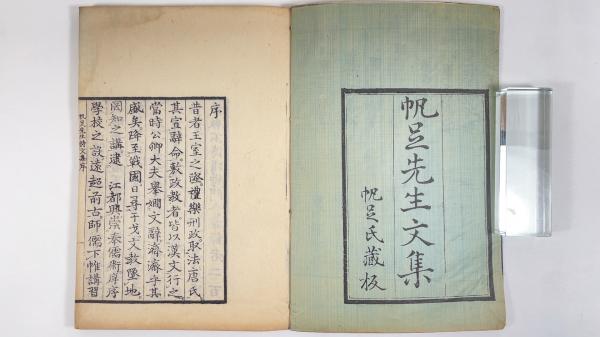 帆足先生文集
帆足氏藏板
序
昔者王室之隆禮樂刑政取法唐氏
其宣辭命敷政教者皆以漢文行之
當時公卿大夫擧嫺文辭濟濟乎其
盛矣降至戰國日尋干戈文教墜地
罔知之講逮 江都興崇泰儒術庠序
學校之設遠超前古師儒下帷講習
帆足先生文集序